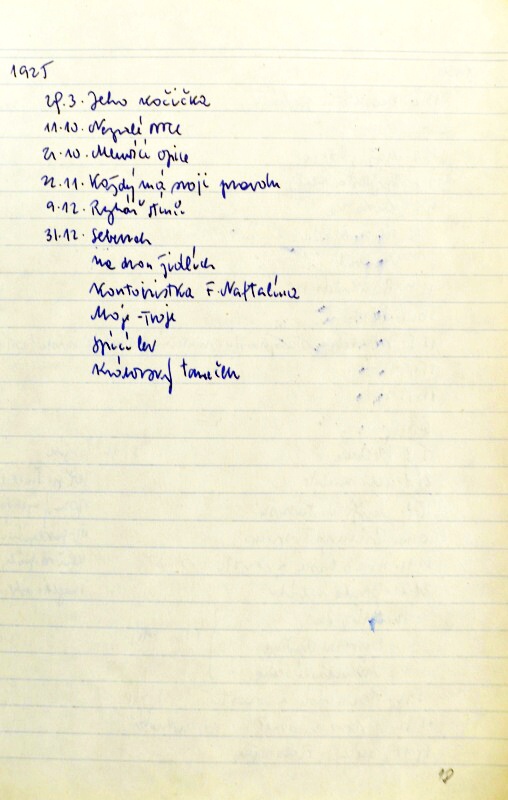 1925
29.3. Jeho kočička
11.10. srdce
21.10. Mluvící opice
22.11. Každý má svoji pravdu
9.12. Rybářův stín
31.12. Sebevrah
Na dvou židlích
Kontoristka F. Naftalína
Moje - Tvoje
Spící lev
Královský taneček